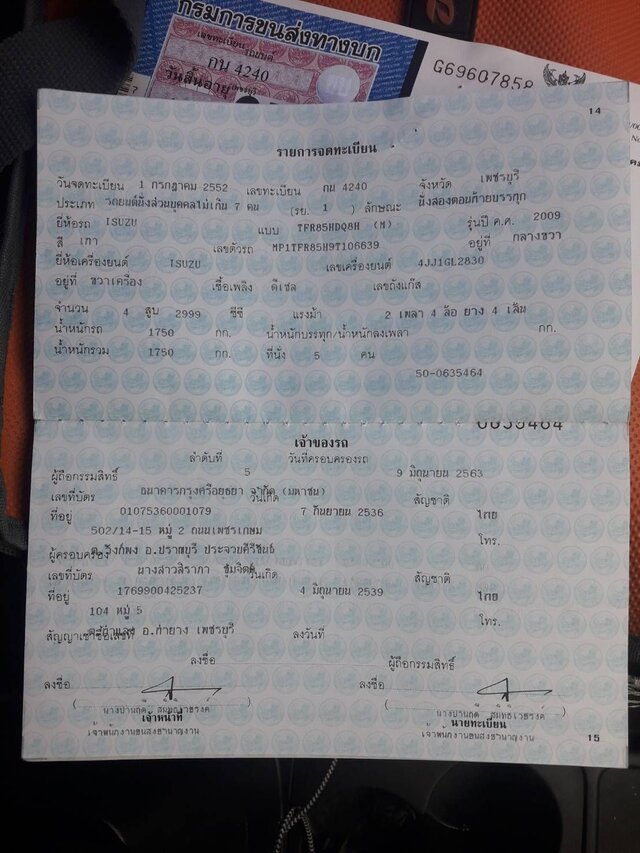 กรมการขนส่งทางบก
เลขทะเบียนรถยนต์
กน 4240
วันสิ้นอายุ
G6960785
14
รายการจดทะเบียน
วันจดทะเบียน 1 กรกฎาคม 2552 เลขทะเบียน กน 4240 จังหวัด เพชรบุรี
ประเภท รถยนต์นั่งส่วนบุคคลไม่เกิน 7 คน (รย. 1 ) ลักษณะ นั่งสองตอนท้ายบรรทุก
ยี่ห้อรถ ISUZU แบบ TFR85HDQ8H (M) รุ่นปี ค.ศ. 2009
สี เทา เลขตัวรถ MP1TFR85H9T106639 อยู่ที่ กลางขวา
ยี่ห้อเครื่องยนต์ ISUZU เลขเครื่องยนต์ 4JJ1GL2830
อยู่ที่ ขวาเครื่อง เชื้อเพลิง ดีเซล เลขถังแก๊ส
จำนวน 4 สูบ 2999 ซีซี แรงม้า 2 เพลา 4 ล้อ ยาง 4 เส้น
น้ำหนักรถ 1750 กก. น้ำหนักบรรทุก/น้ำหนักลงเพลา กก.
น้ำหนักรวม 1750 กก. ที่นั่ง 5 คน
50-0635464
0635464
เจ้าของรถ
ลำดับที่ 5 วันที่ครอบครองรถ 9 มิถุนายน 2563
ผู้ถือกรรมสิทธิ์ ธนาคารกรุงศรีอยุธยา จำกัด (มหาชน)
เลขที่บัตร 01075360001079 วันเกิด 7 กันยายน 2536 สัญชาติ ไทย
ที่อยู่ 502/14-15 หมู่ 2 ถนนเพชรเกษม โทร.
ต.วังก์พง อ.ปราณบุรี ประจวบคีรีขันธ์
ผู้ครอบครอง นางสาวสิราภา
เลขที่บัตร 1769900425237 วันเกิด 4 มิถุนายน 2539 สัญชาติ ไทย
ที่อยู่ 104 หมู่ 5 โทร.
อ.ท่ายาง เพชรบุรี
สัญญาเช่าซื้อเลขที่ ลงวันที่
ลงชื่อ ผู้ถือกรรมสิทธิ์
ลงชื่อ ลงชื่อ
เจ้าหน้าที่ นายทะเบียน
เจ้าพนักงานขนส่งชำนาญงาน เจ้าพนักงานขนส่งชำนาญงาน
15